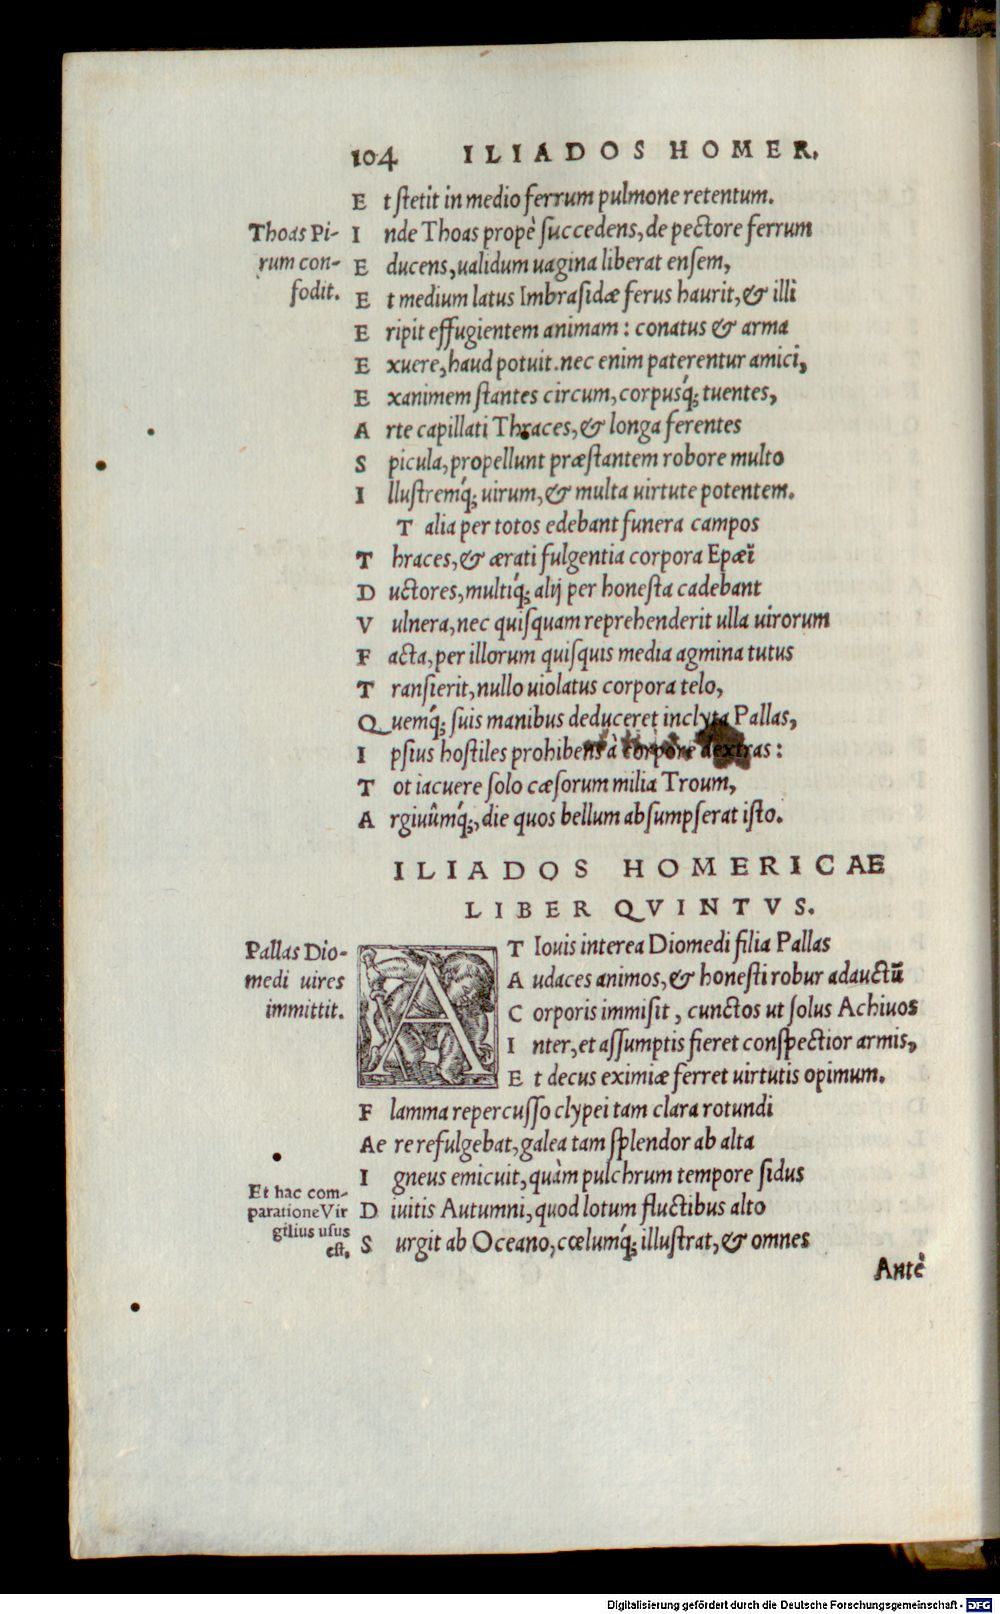 104 ILIADOS HOMER.
Et stetit in medio ferrum pulmone retentum.
Thoas Pi-
rum con-
fodit.
Inde Thoas propè succedens, de pectore ferrum
Educens, ualidum uagina liberat ensem,
Et medium latus Imbrasidæ ferus haurit, & illi
Eripit effugientem animam: conatus & arma
Exuere, haud potuit. nec enim paterentur amici,
Exanimem stantes circum, corpusq́; tuentes,
Arte capillati Thraces, & longa ferentes
Spicula, propellunt præstantem robore multo
Illustremq́; uirum, & multa uirtute potentem.
Talia per totos edebant funera campos
Thraces, & ærati fulgentia corpora Epæi
Ductores, multiq́; alij per honesta cadebant
Vulnera, nec quisquam reprehenderit ulla uirorum
Facta, per illorum quisquis media agmina tutus
Transierit, nullo uiolatus corpora telo,
Quemq́; suis manibus deduceret inclyta Pallas,
Ipsius hostiles prohibens à corpore dextras:
Tot iacuere solo cæsorum milia Troum,
Argiuûmq́;, die quos bellum absumpserat isto.
ILIADOS HOMERICAE
LIBER QVINTVS.
Pallas Dio-
medi uires
immittit.
AT Iouis interea Diomedi filia Pallas
Audaces animos, & honesti robur adauctū
Corporis immisit, cunctos ut solus Achiuos
Inter, et assumptis fieret conspectior armis,
Et decus eximiæ ferret uirtutis opimum.
Flamma repercusso clypei tam clara rotundi
Aere refulgebat, galea tam splendor ab alta
Igneus emicuit, quàm pulchrum tempore sidus
Et hac com-
paratione Vir
gilius usus
est.
Diuitis Autumni, quod lotum fluctibus alto
Surgit ab Oceano, cœlumq́; illustrat, & omnes
Antè
Digitalisierung gefördert durch die Deutsche Forschungsgemeinschaft - DFG